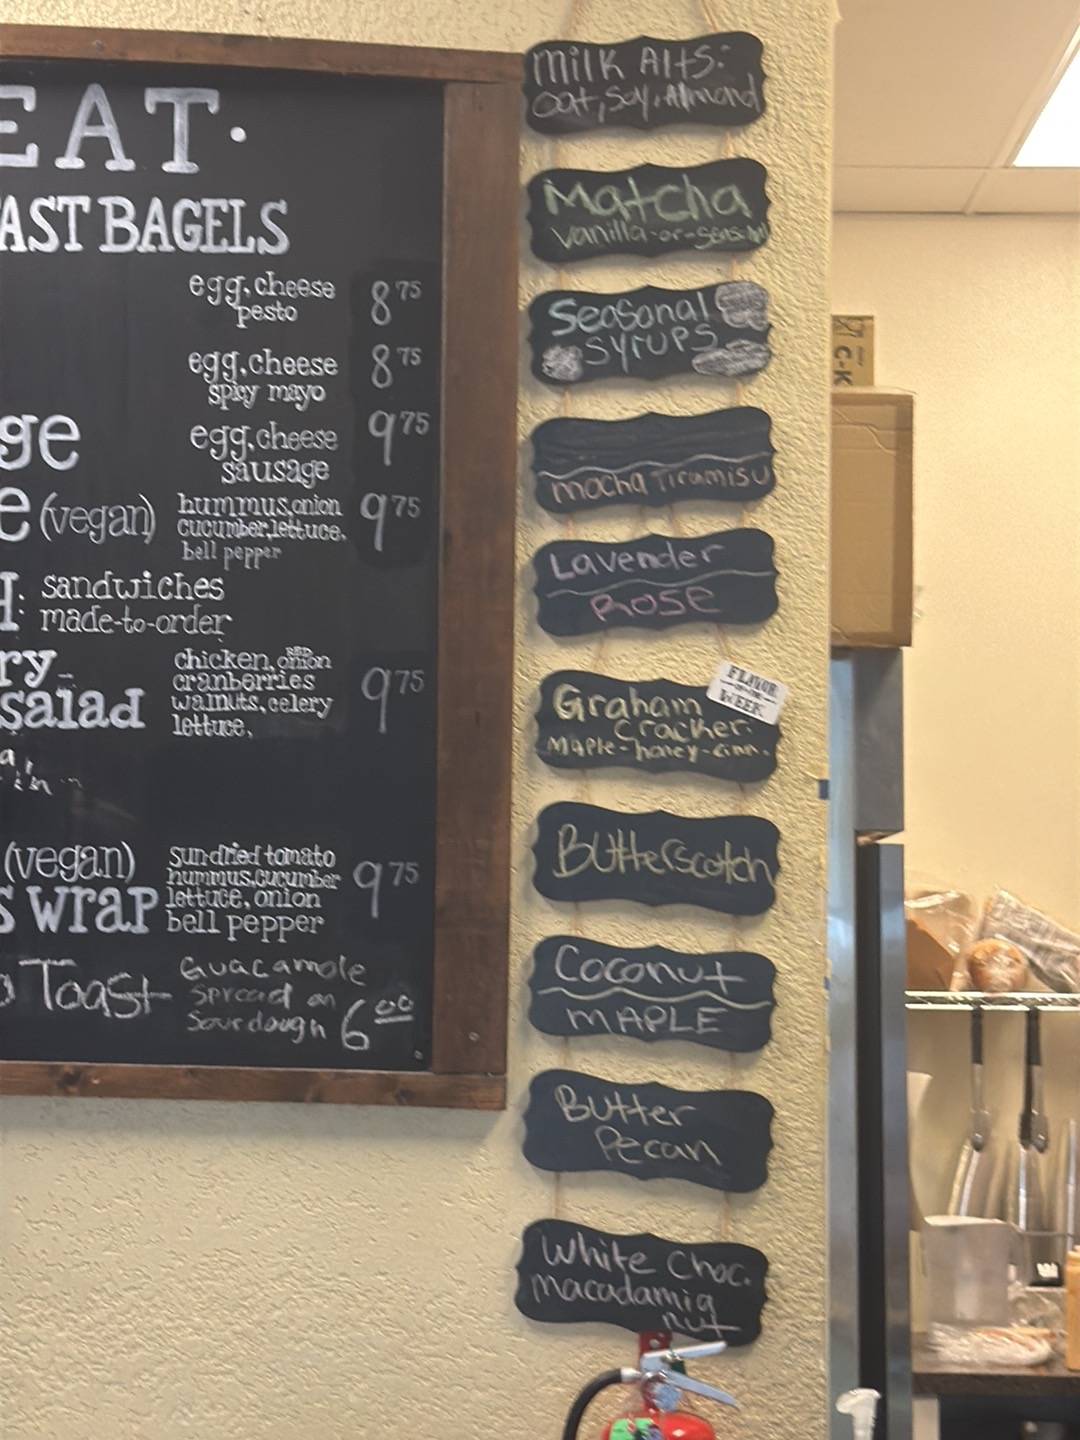 EAT.
AST BAGELS
egg, cheese
pesto
8 75
egg, cheese
spicy mayo
8 75
ge
egg, cheese
sausage
9 75
e (vegan)
hummus, onion
cucumber, lettuce,
bell pepper
9 75
H: sandwiches
made-to-order
ry
salad
chicken, RED onion
cranberries
walnuts, celery
lettuce,
9 75
(vegan)
s wrap
sundried tomato
hummus, cucumber
lettuce, onion
bell pepper
9 75
Toast
Guacamole
Spread on
Sourdough
6 00
Milk Alts:
Oat, Soy, Almond
Matcha
vanilla-or-seasonal
Seasonal
Syrups
mocha Tiramisu
Lavender
Rose
Graham
Cracker.
Maple-honey-cinn.
FLAVOR
OF THE
WEEK
Butterscotch
Coconut
MAPLE
Butter
Pecan
White Choc.
macadamia
nut
C-K